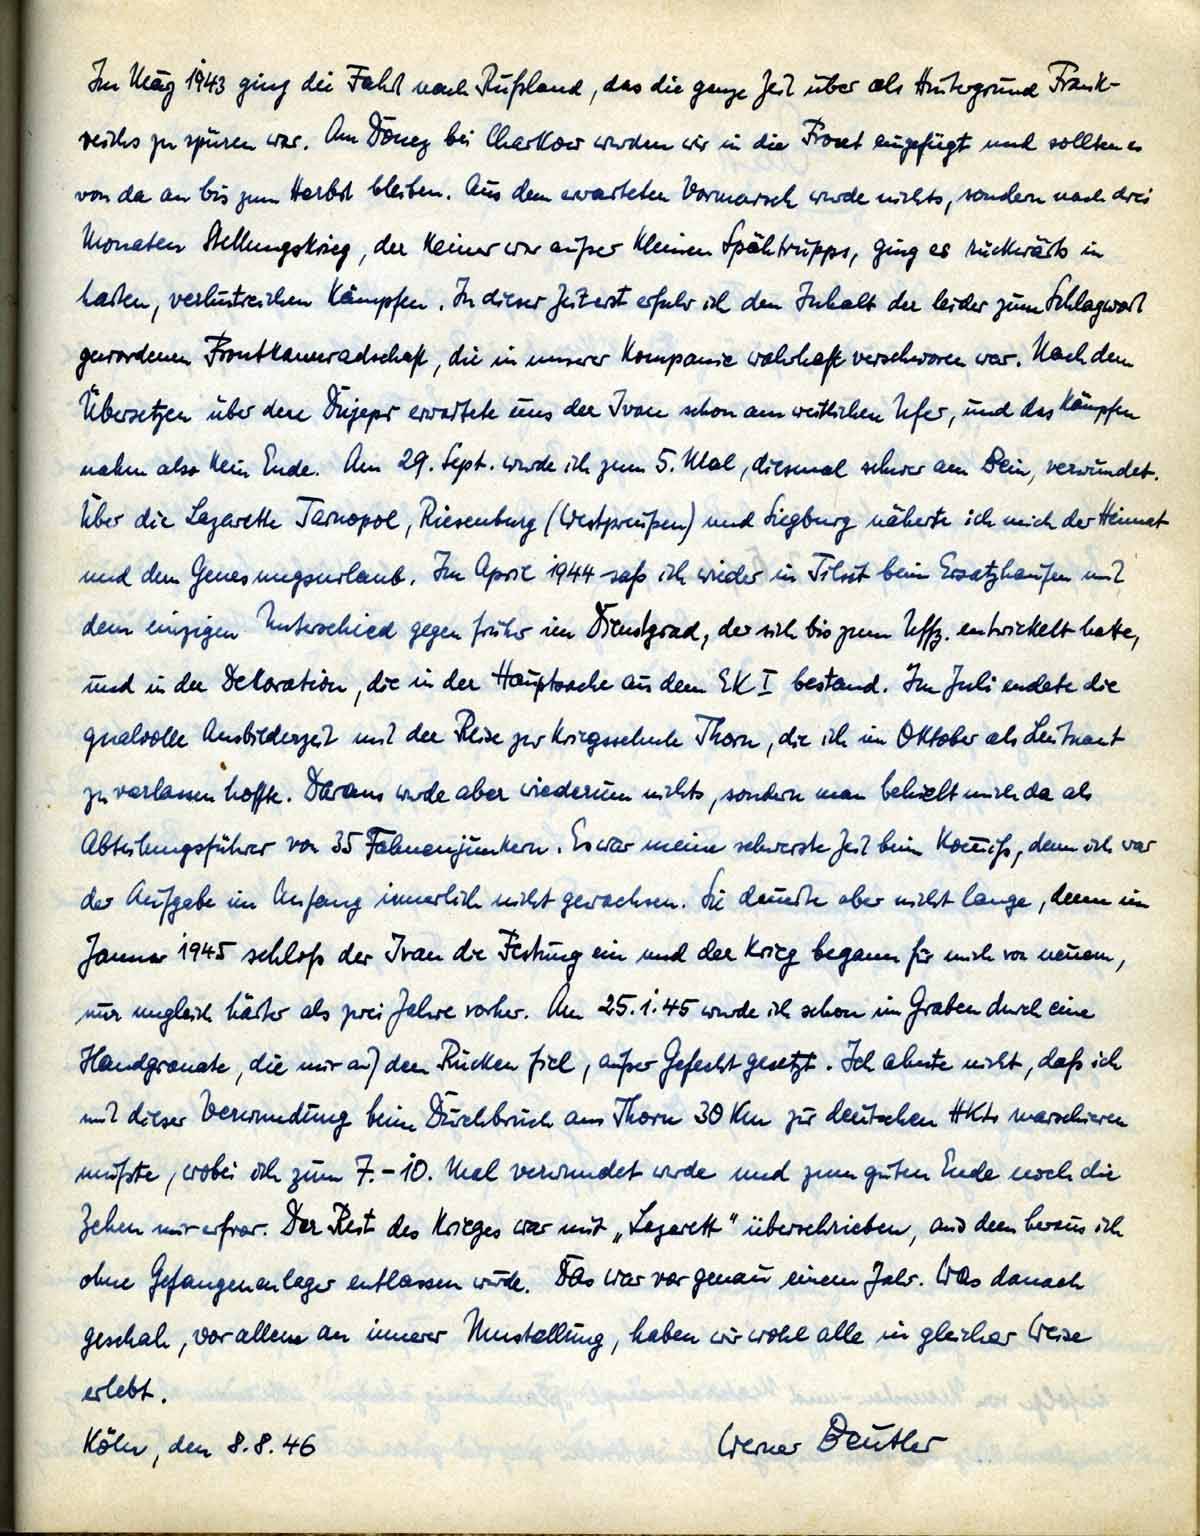 Im März 1943 ging die Fahrt nach Rußland, das die ganze Zeit über als Hintergrund Frank-
reichs zu spüren war. Am Donez bei Charkow wurden wir in die Front eingefügt und sollten es
von da an bis zum Herbst bleiben. Aus dem erwarteten Vormarsch wurde nichts, sondern nach drei
Monaten Stellungskrieg, der keiner war außer kleinen Spähtrupps, ging es rückwärts in
harten, verlustreichen Kämpfen. In dieser Zeit erst erfuhr ich den Inhalt der leider zum Schlagwort
gewordenen Frontkameradschaft, die in unserer Kompanie wahrhaft verschworen war. Nach dem
Übersetzen über den Dnjepr erwartete uns der Ivan schon am westlichen Ufer, und das Kämpfen
nahm also kein Ende. Am 29. Sept. wurde ich zum 5. Mal, diesmal schwer am Bein, verwundet.
Über die Lazarette Tarnopol, Riesenburg (Westpreußen) und Siegburg näherte ich mich der Heimat
und dem Genesungsurlaub. Im April 1944 saß ich wieder in Tilsit beim Ersatzhaufen mit
dem einzigen Unterschied gegen früher im Dienstgrad, der sich bis zum Uffz. entwickelt hatte,
und in der Dekoration, die in der Hauptsache aus dem EK I bestand. Im Juli endete die
qualvolle Ausbilderzeit mit der Reise zur Kriegsschule Thorn, die ich im Oktober als Leutnant
zu verlassen hoffte. Daraus wurde aber wiederum nichts, sondern man behielt mich da als
Abteilungsführer von 35 Fahnenjunkern. Es war meine schwerste Zeit beim Kommiß, denn ich war
der Aufgabe im Anfang innerlich nicht gewachsen. Sie dauerte aber nicht lange, denn im
Januar 1945 schloß der Ivan die Festung ein und der Krieg begann für mich von neuem,
nur ungleich härter als zwei Jahre vorher. Am 25.1.45 wurde ich schon im Graben durch eine
Handgranate, die mir auf den Rücken fiel, außer Gefecht gesetzt. Ich ahnte nicht, daß ich
mit dieser Verwundung beim Durchbruch aus Thorn 30 Km zur deutschen HKL marschieren
mußte, wobei ich zum 7.-10. Mal verwundet wurde und zum guten Ende noch die
Zehen mir erfror. Der Rest des Krieges war mit „Lazarett" überschrieben, aus dem heraus ich
ohne Gefangenenlager entlassen wurde. Das war vor genau einem Jahr. Was danach
geschah, vor allem an innerer Umstellung, haben wir wohl alle in gleicher Weise
erlebt.
Köln, den 8.8.46 Werner Deutler